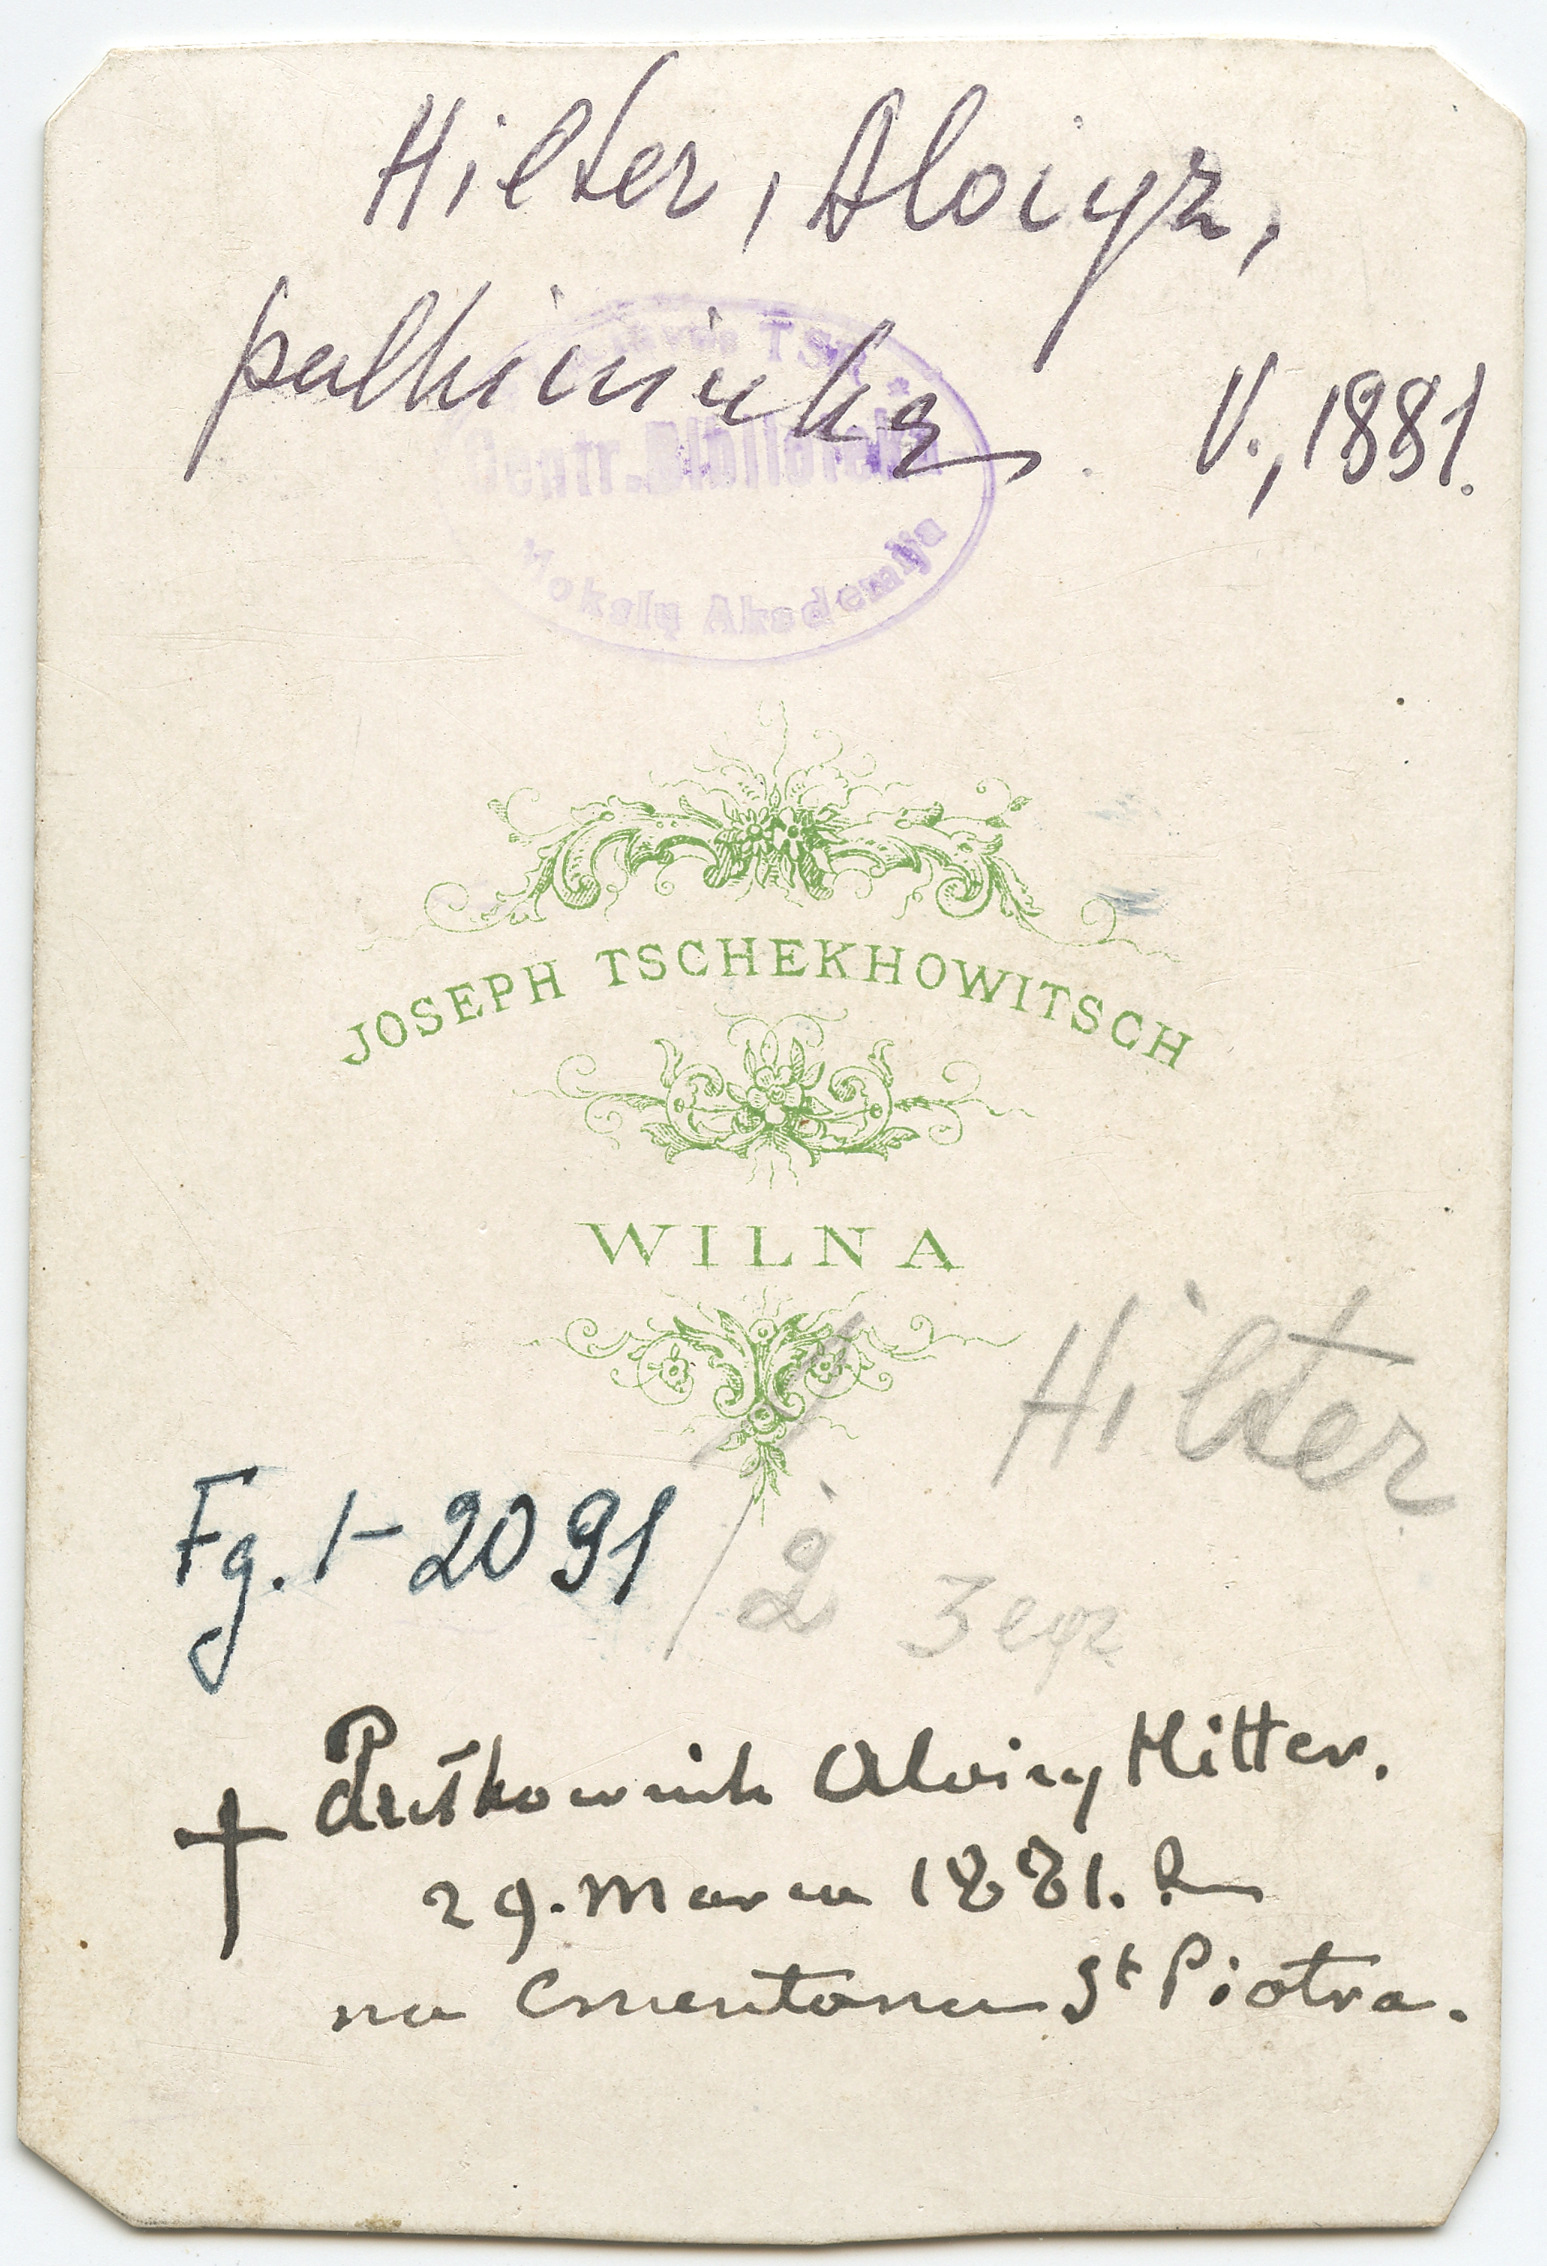 Hilter, Aloiyz,
pulkininkas V., 1881.
TSR
Centr. Biblioteka
Mokslų Akademija
JOSEPH TSCHEKHOWITSCH
WILNA
Hilter
Fg. 1-2091/2 3 egz
Hilter.
29. Marca 1881. R
na Cmentarzu St Piotra.